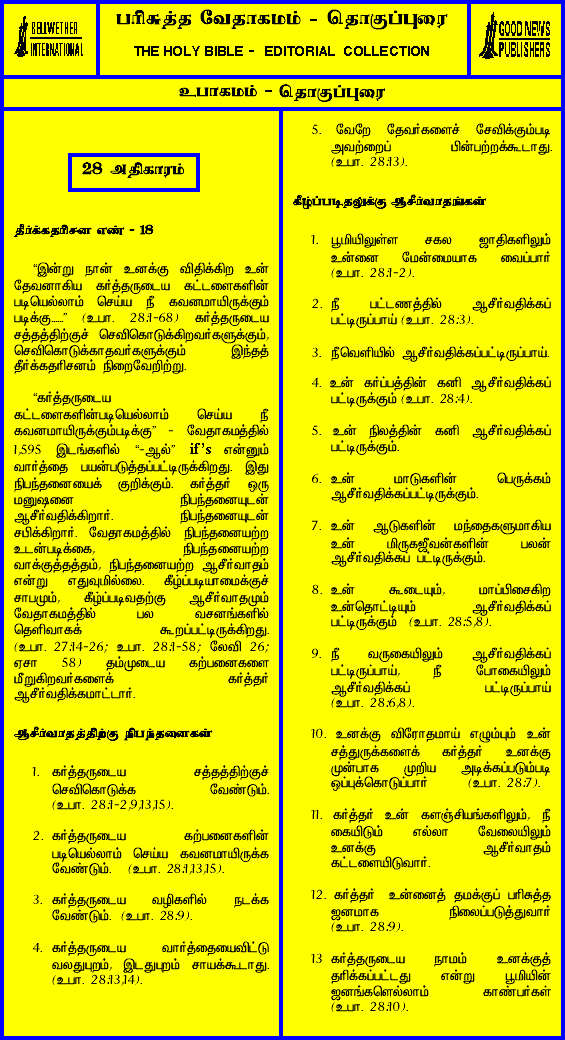 BELLWETHER
INTERNATIONAL
பரிசுத்த வேதாகமம் - தொகுப்புரை
THE HOLY BIBLE - EDITORIAL COLLECTION
GOOD NEWS
PUBLISHERS
உபாகமம் - தொகுப்புரை
28 அதிகாரம்
தீர்க்கதரிசன எண் - 18
“இன்று நான் உனக்கு விதிக்கிற உன்
தேவனாகிய கர்த்தருடைய கட்டளைகளின்
படியெல்லாம் செய்ய நீ கவனமாயிருக்கும்
படிக்கு.....” (உபா. 28:1-68) கர்த்தருடைய
சத்தத்திற்குச் செவிகொடுக்கிறவர்களுக்கும்,
செவிகொடுக்காதவர்களுக்கும் இந்தத்
தீர்க்கதரிசனம் நிறைவேறிற்று.
“கர்த்தருடைய
கட்டளைகளின்படியெல்லாம் செய்ய நீ
கவனமாயிருக்கும்படிக்கு” - வேதாகமத்தில்
1,595 இடங்களில் “-ஆல்” if's என்னும்
வார்த்தை பயன்படுத்தப்பட்டிருக்கிறது. இது
நிபந்தனையைக் குறிக்கும். கர்த்தர் ஒரு
மனுஷனை நிபந்தனையுடன்
ஆசீர்வதிக்கிறார். நிபந்தனையுடன்
சபிக்கிறார். வேதாகமத்தில் நிபந்தனையற்ற
உடன்படிக்கை, நிபந்தனையற்ற
வாக்குத்தத்தம், நிபந்தனையற்ற ஆசீர்வாதம்
என்று எதுவுமில்லை. கீழ்ப்படியாமைக்குச்
சாபமும், கீழ்ப்படிவதற்கு ஆசீர்வாதமும்
வேதாகமத்தில் பல வசனங்களில்
தெளிவாகக் கூறப்பட்டிருக்கிறது.
(உபா. 27:14-26; உபா. 28:1-58; லேவி 26;
ஏசா 58) தம்முடைய கற்பனைகளை
மீறுகிறவர்களைக் கர்த்தர்
ஆசீர்வதிக்கமாட்டார்.
ஆசீர்வாதத்திற்கு நிபந்தனைகள்
1. கர்த்தருடைய சத்தத்திற்குச்
செவிகொடுக்க வேண்டும்.
(உபா. 28:1-2,9,13,15).
2. கர்த்தருடைய கற்பனைகளின்
படியெல்லாம் செய்ய கவனமாயிருக்க
வேண்டும். (உபா. 28:1,13,15).
3. கர்த்தருடைய வழிகளில் நடக்க
வேண்டும். (உபா. 28:9).
4. கர்த்தருடைய வார்த்தையைவிட்டு
வலதுபுறம், இடதுபுறம் சாயக்கூடாது.
(உபா. 28:13,14).
5. வேறே தேவர்களைச் சேவிக்கும்படி
அவற்றைப் பின்பற்றக்கூடாது.
(உபா. 28:13).
கீழ்ப்படிதலுக்கு ஆசீர்வாதங்கள்
1. பூமியிலுள்ள சகல ஜாதிகளிலும்
உன்னை மேன்மையாக வைப்பார்
(உபா. 28:1-2).
2. நீ பட்டணத்தில் ஆசீர்வதிக்கப்
பட்டிருப்பாய் (உபா. 28:3).
3. நீவெளியில் ஆசீர்வதிக்கப்பட்டிருப்பாய்.
4. உன் கர்ப்பத்தின் கனி ஆசீர்வதிக்கப்
பட்டிருக்கும் (உபா. 28:4).
5. உன் நிலத்தின் கனி ஆசீர்வதிக்கப்
பட்டிருக்கும்.
6. உன் மாடுகளின் பெருக்கம்
ஆசீர்வதிக்கப்பட்டிருக்கும்.
7. உன் ஆடுகளின் மந்தைகளுமாகிய
உன் மிருகஜீவன்களின் பலன்
ஆசீர்வதிக்கப் பட்டிருக்கும்.
8. உன் கூடையும், மாப்பிசைகிற
உன்தொட்டியும் ஆசீர்வதிக்கப்
பட்டிருக்கும் (உபா. 28:5,8).
9. நீ வருகையிலும் ஆசீர்வதிக்கப்
பட்டிருப்பாய், நீ போகையிலும்
ஆசீர்வதிக்கப் பட்டிருப்பாய்
(உபா. 28:6,8).
10. உனக்கு விரோதமாய் எழும்பும் உன்
சத்துருக்களைக் கர்த்தர் உனக்கு
முன்பாக முறிய அடிக்கப்படும்படி
ஒப்புக்கொடுப்பார் (உபா. 28:7).
11. கர்த்தர் உன் களஞ்சியங்களிலும், நீ
கையிடும் எல்லா வேலையிலும்
உனக்கு ஆசீர்வாதம்
கட்டளையிடுவார்.
12. கர்த்தர் உன்னைத் தமக்குப் பரிசுத்த
ஜனமாக நிலைப்படுத்துவார்
(உபா. 28:9).
13 கர்த்தருடைய நாமம் உனக்குத்
தரிக்கப்பட்டது என்று பூமியின்
ஜனங்களெல்லாம் காண்பர்கள்
(உபா. 28:10).